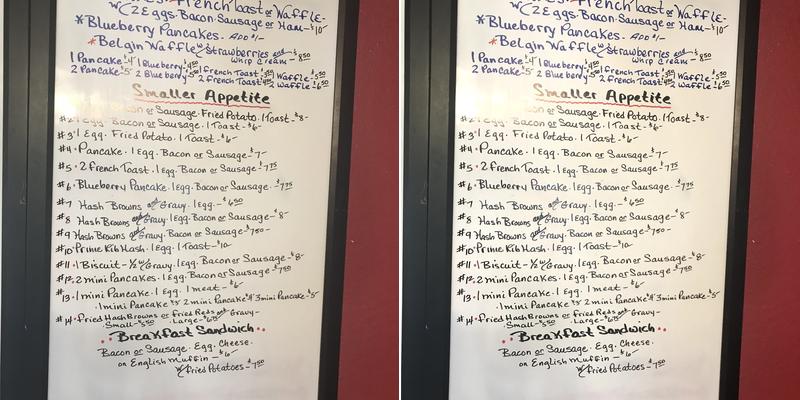 French Toast or Waffle-
w/ 2 Eggs. Bacon. Sausage or Ham-$10-
*Blueberry Pancakes. ADD $1-
*Belgin Waffle w/ Strawberries and Whip Cream-$8.50
1 Pancake $4 1 Blueberry 1 French Toast Waffle
2 Pancake $5 2 Blueberry 2 French Toast 2 Waffle $6.50
Smaller Appetite
Bacon or Sausage. Fried Potato. 1 Toast-$8-
1 Egg. Bacon or Sausage. 1 Toast-$6-
#3 1 Egg. Fried Potato. 1 Toast-$6-
#4. Pancake. 1 Egg. Bacon or Sausage-$7-
#5. 2 French Toast. 1 Egg. Bacon or Sausage-$7.75
#6. Blueberry Pancake. 1 Egg. Bacon or Sausage-$7.75
#7 Hash Browns and Gravy. 1 Egg-$6.50
#8 Hash Browns and Gravy. 1 Egg. Bacon or Sausage-$8-
#9 Hash Browns and Gravy. Bacon or Sausage-$7.50-
#10 Prime Rib Hash. 1 Egg. 1 Toast-$10-
#11. 1 Biscuit-1/2 w/ Gravy. 1 Egg. Bacon or Sausage-$8-
#12. 2 mini Pancakes. 1 Egg. Bacon or Sausage-$7.50
#13. 1 mini Pancake. 1 Egg. 1 meat-$6-
1 mini Pancake $3 2 mini Pancake $4 3 mini Pancake-$5-
#14. Fried Hash Browns or Fried Reds and Gravy-
Small-$5.50 Large-
Breakfast Sandwich
Bacon or Sausage. Egg. Cheese.
on English Muffin-$6-
w/ Fried Potatoes-$7.50